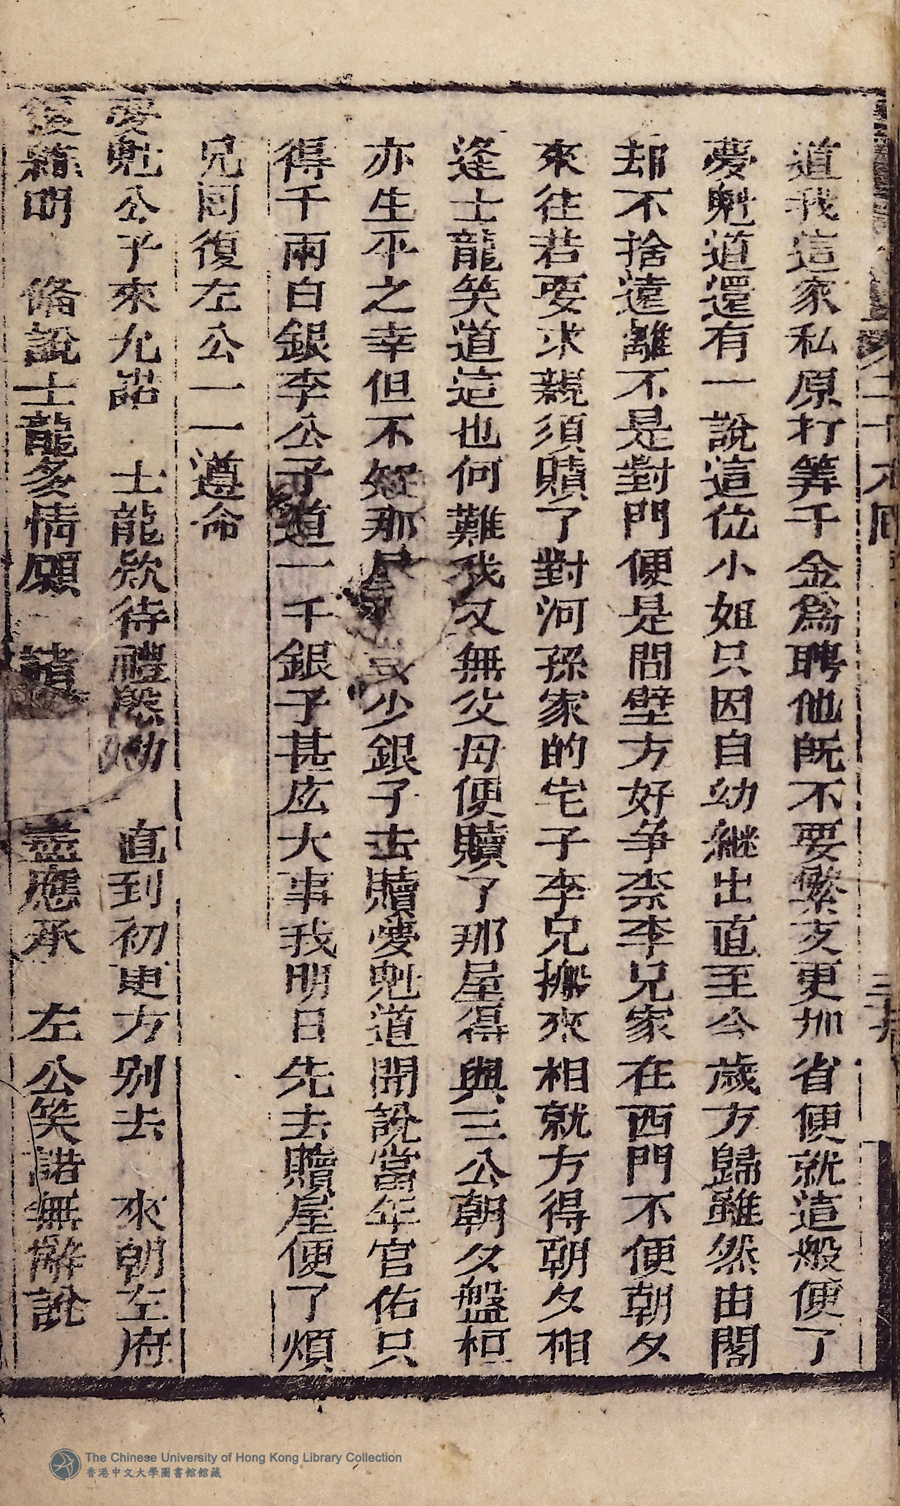 道我這家私原打筭千金為聘他既不要繁文更加省便就這般便了
夢魁道還有一說這位小姐只因自幼繼出直至今歲方歸雖然由閣
却不捨遠離不是對門便是間壁方好爭柰李兄家在西門不便朝夕
來往若要求親須贖了對河孫家的宅子李兄搬來相就方得朝夕相
逢士龍笑道這也何難我又無父母便贖了那屋得與三公朝夕盤桓
亦生平之幸但不好那少銀子去贖夢魁道開說當年官佑只
得千兩白銀李公子道一千銀子甚庅大事我明日先去贖屋便了煩
兄囬復左公一一遵命
夢魁公子來允諾 士龍欵待禮慇懃 直到初更方別去 來朝左府
復蘇明 備說士龍多情願 諸 盡應承 左公笑諾無辭說
The Chinese University of Hong Kong Library Collection
香港中文大學圖書館館藏